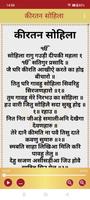 कीरतन सोहिला
कीरतन सोहिला
सोहिला रागु गउड़ी दीपकी महला १
ੴ सतिगुर प्रसादि ॥
जे घरि कीरति आखीऐ करते का होइ
बीचारो ॥
तितु घरि गावहु सोहिला सिवरिहु
सिरजणहारो ॥१॥
तुम गावहु मेरे निरभउ का सोहिला ॥
हउ वारी जितु सोहिलै सदा सुखु होइ
॥१॥ रहाउ ॥
नित नित जीअड़े समालीअनि देखैगा
देवणहारु ॥
तेरे दानै कीमति ना पवै तिसु दाते
कवणु सुमारु ॥२॥
स्मबति साहा लिखिआ मिलि करि
पावहु तेलु ॥
देहु सजण असीसड़ीआ जिउ होवै